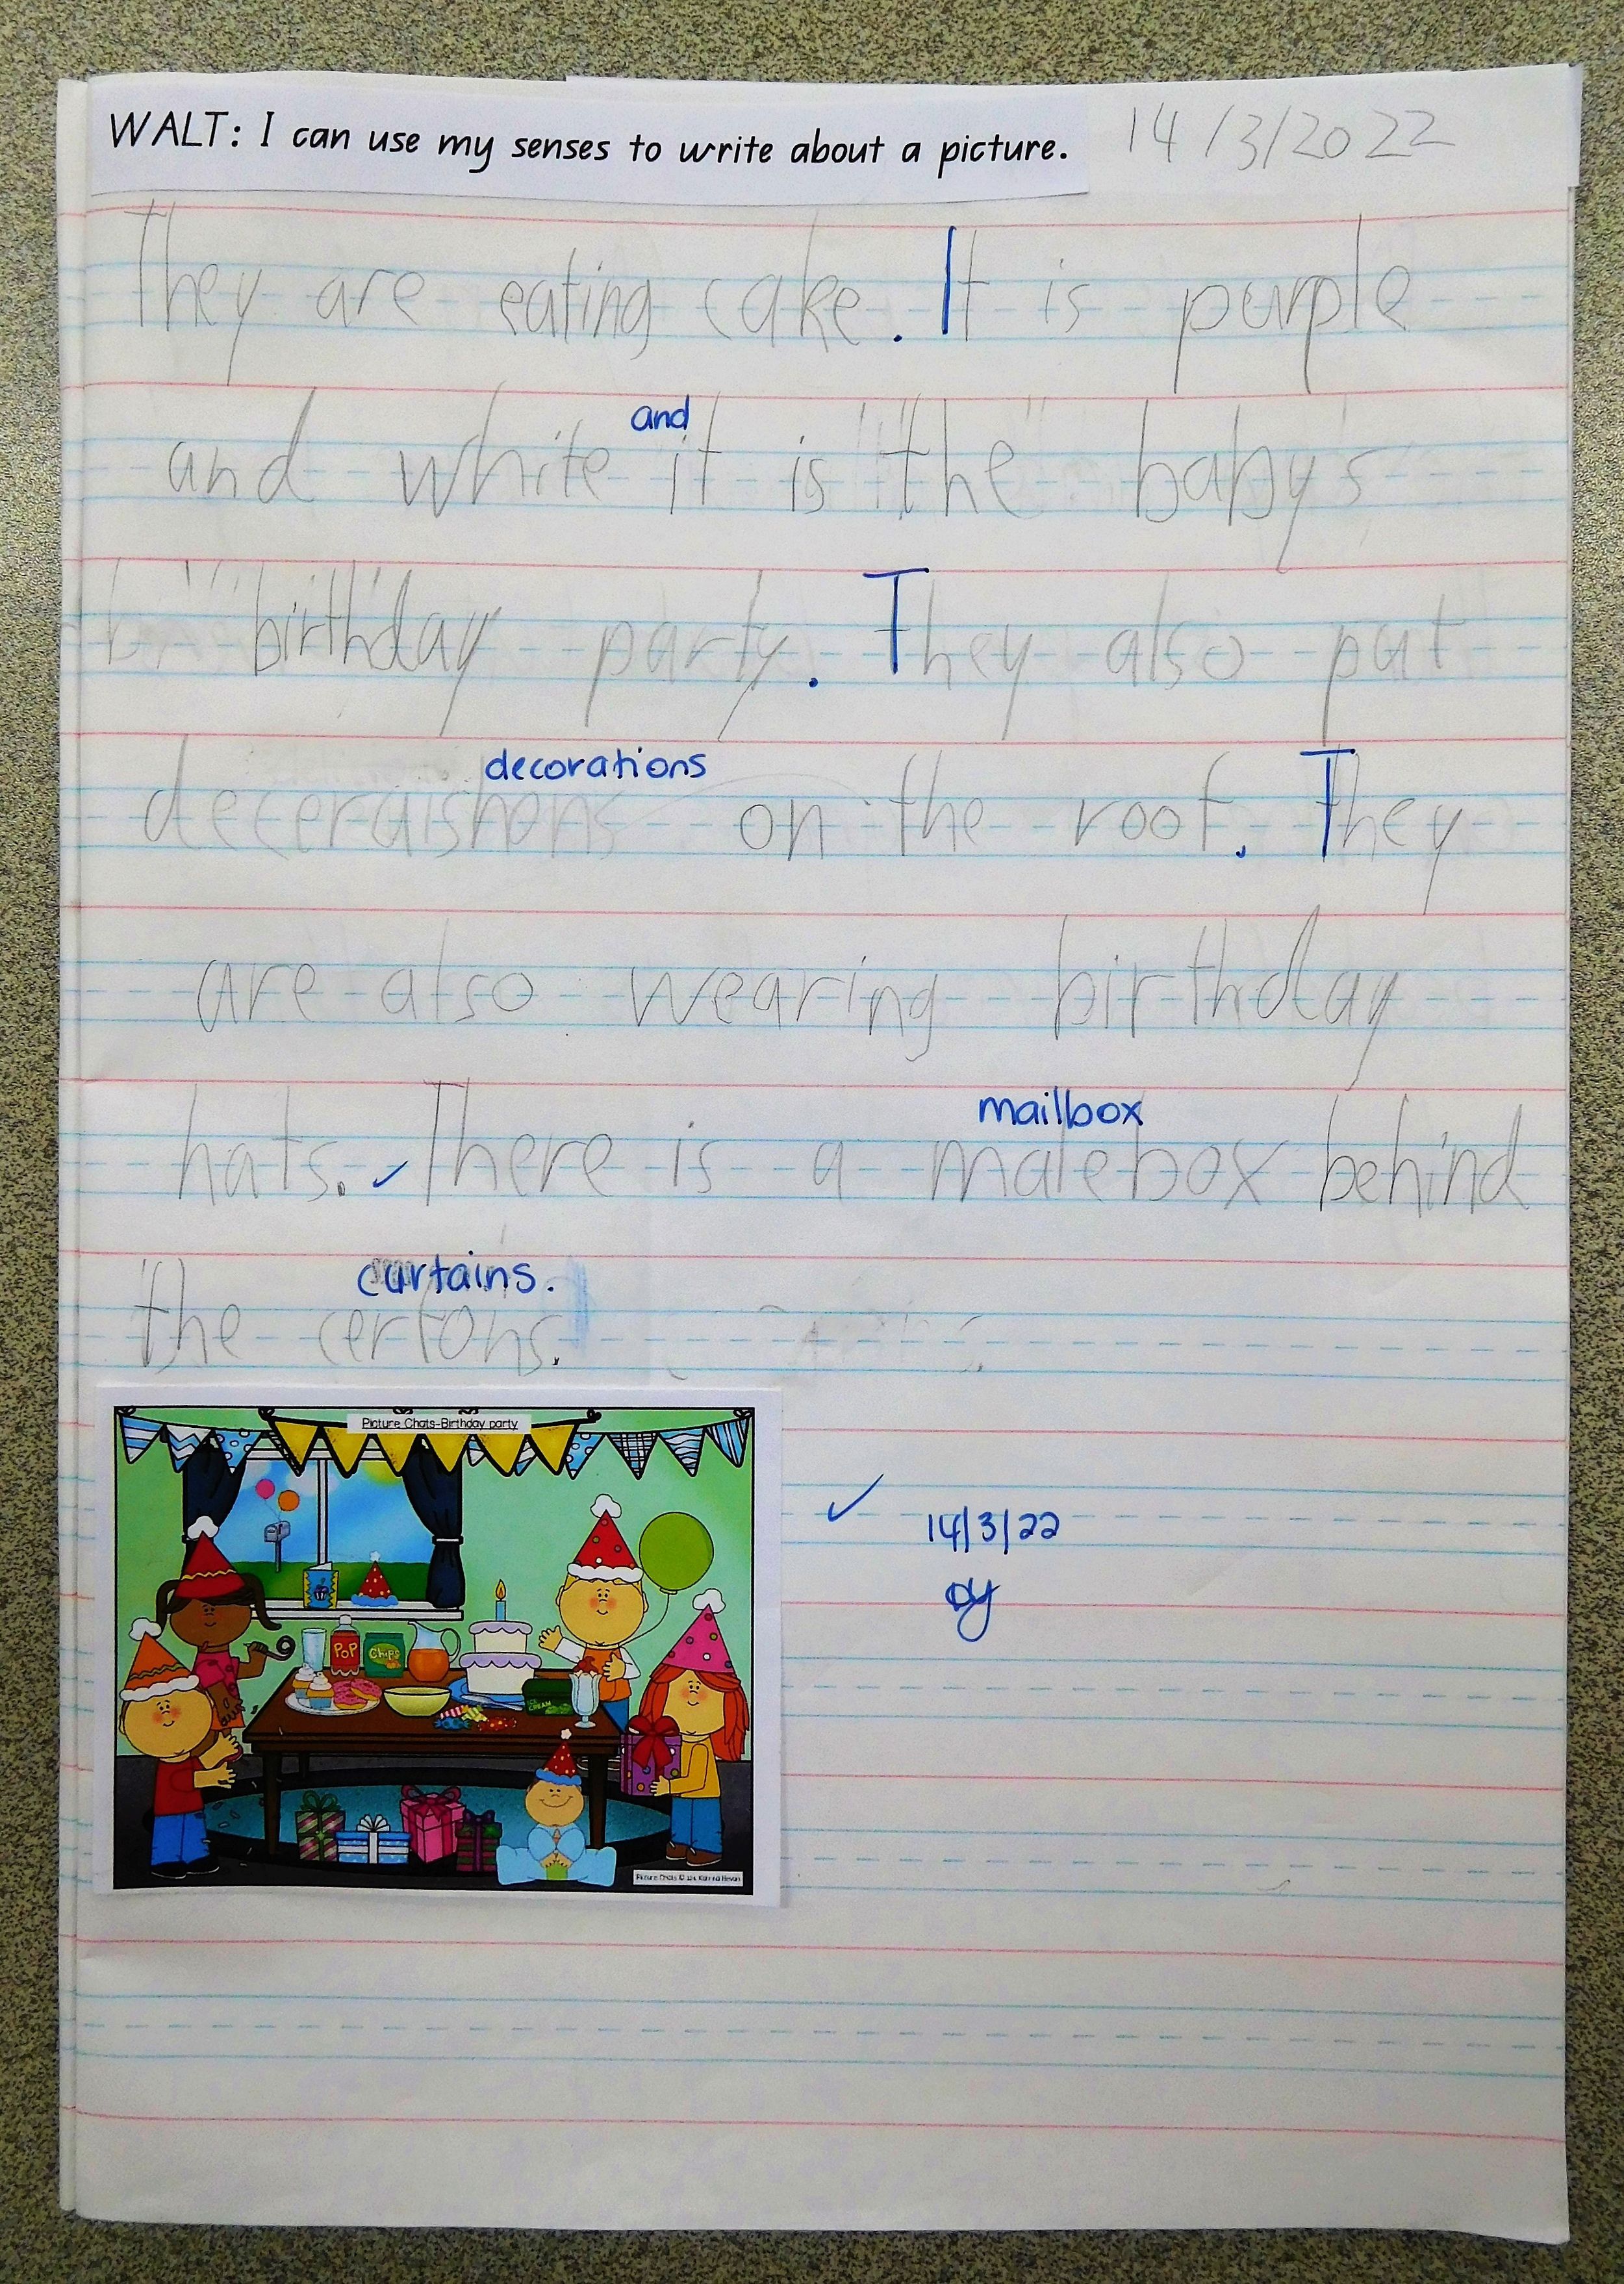 WALT: I can use my senses to write about a picture. 14/3/2022
They are eating cake. It is purple
and
and white it is the baby's
birthday party. They also put
decorations
deceraishons on the roof. They
are also wearing birthday
mailbox
hats. There is a malebox behind
curtains.
the certons.
Picture Chats-Birthday party
POP
Chips
ICE CREAM
14/3/22
Picture Chats ©